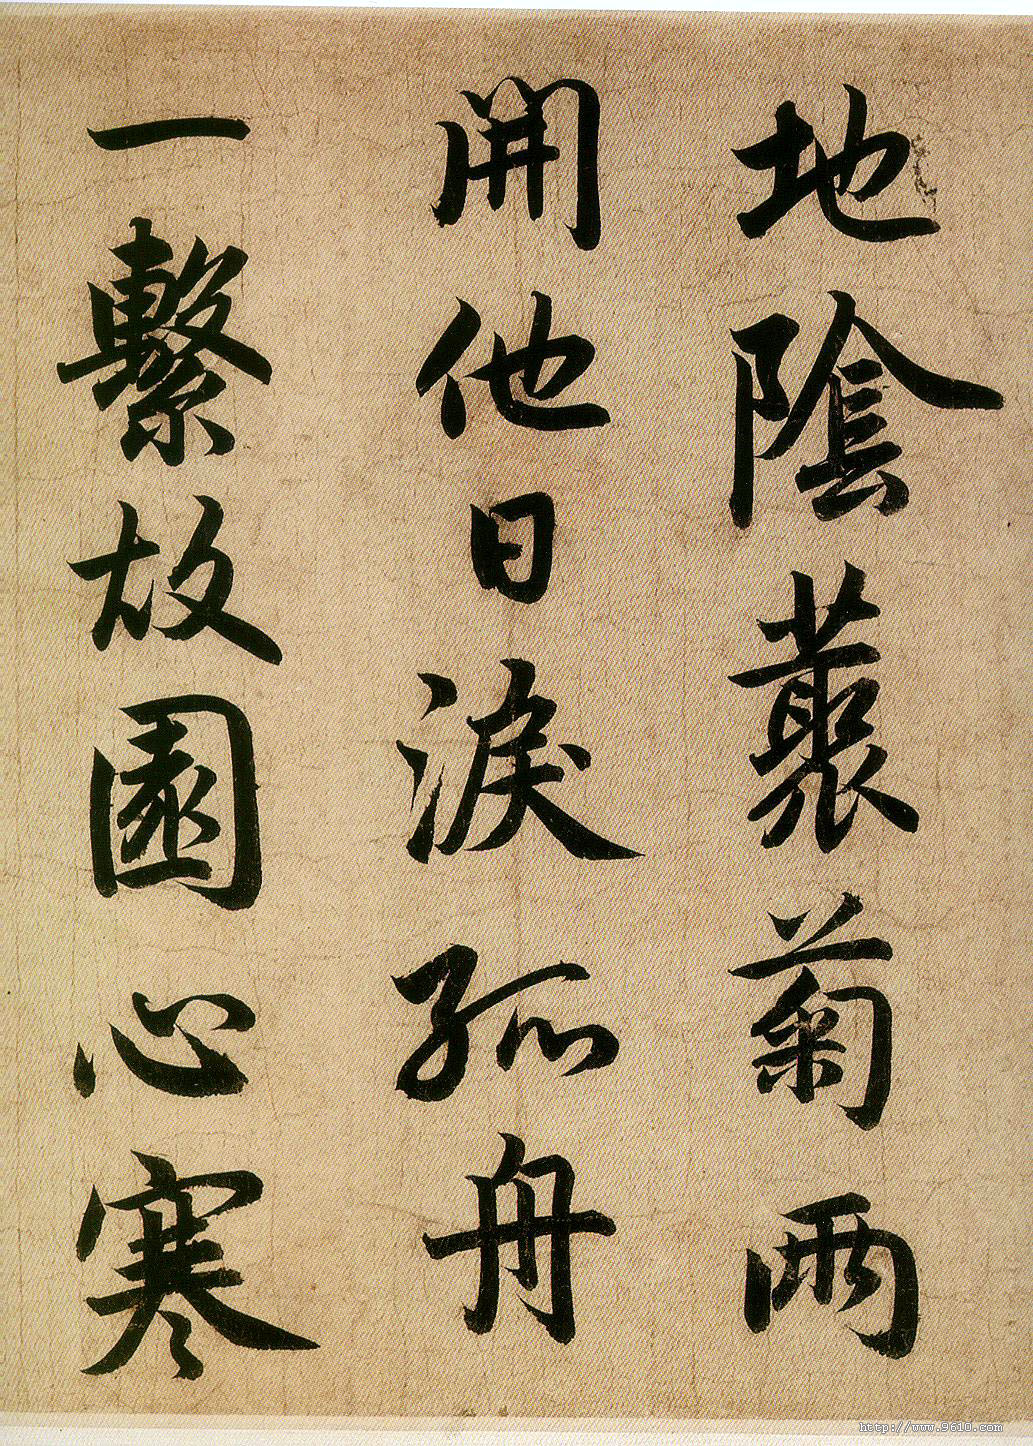 地陰叢菊兩
開他日淚孤舟
一繫故園心寒
http://www.9610.com